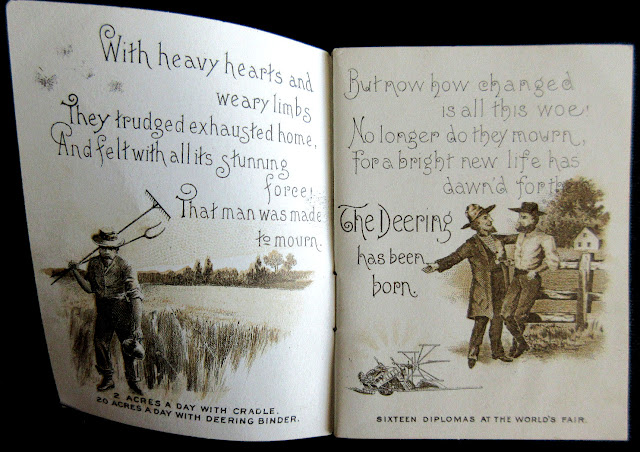 With heavy hearts and
weary limbs
They trudged exhausted home,
And felt with all its stunning
force,
That man was made
to mourn.
2 ACRES A DAY WITH CRADLE.
20 ACRES A DAY WITH DEERING BINDER.
But now how changed
is all this woe,
No longer do they mourn,
for a bright new life has
dawn'd for them
The Deering
has been
born.
SIXTEEN DIPLOMAS AT THE WORLD'S FAIR.